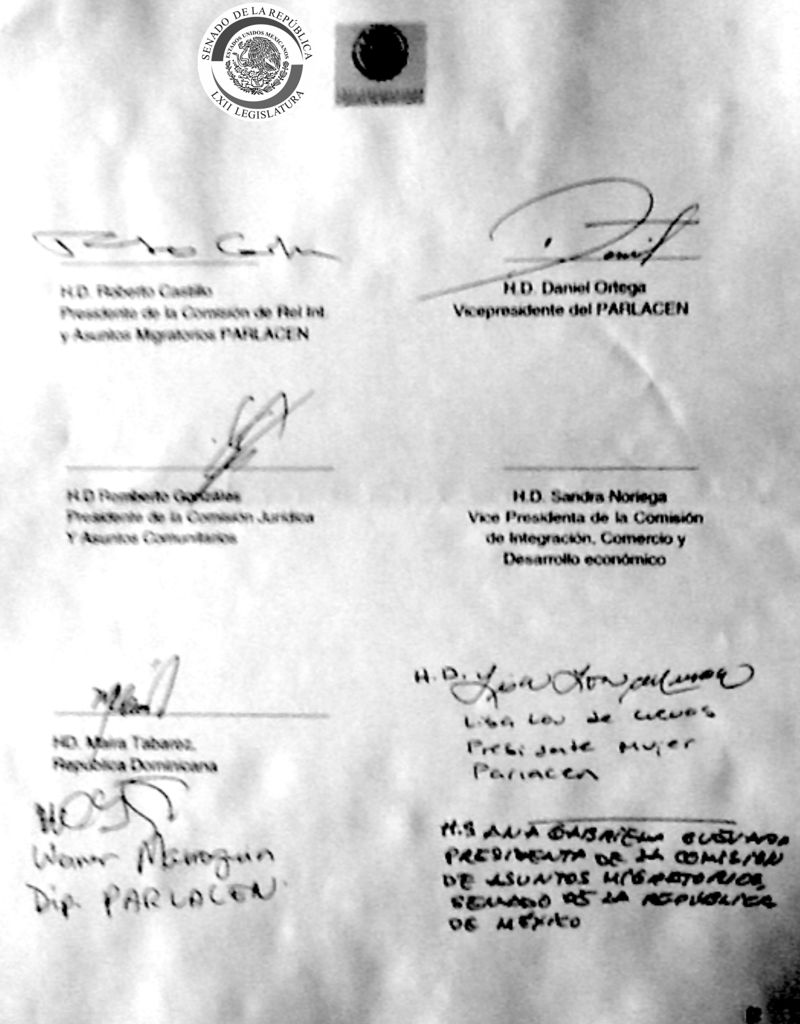 SENADO DE LA REPÚBLICA
ESTADOS UNIDOS MEXICANOS
LXII LEGISLATURA
H.D. Roberto Castillo
Presidente de la Comisión de Rel Int
y Asuntos Migratorios PARLACEN
H.D. Daniel Ortega
Vicepresidente del PARLACEN
H.D Remberto Gonzales
Presidente de la Comisión Jurídica
Y Asuntos Comunitarios
H.D. Sandra Noriega
Vice Presidenta de la Comisión
de Integración, Comercio y
Desarrollo económico
HD. Maira Tabarez,
Republica Dominicana
H.D.
Presidente Mujer
Parlacen
Dip. PARLACEN
H.S ANA GABRIELA GUEVARA
PRESIDENTA DE LA COMISIÓN
DE ASUNTOS MIGRATORIOS,
SENADO DE LA REPÚBLICA
DE MÉXICO